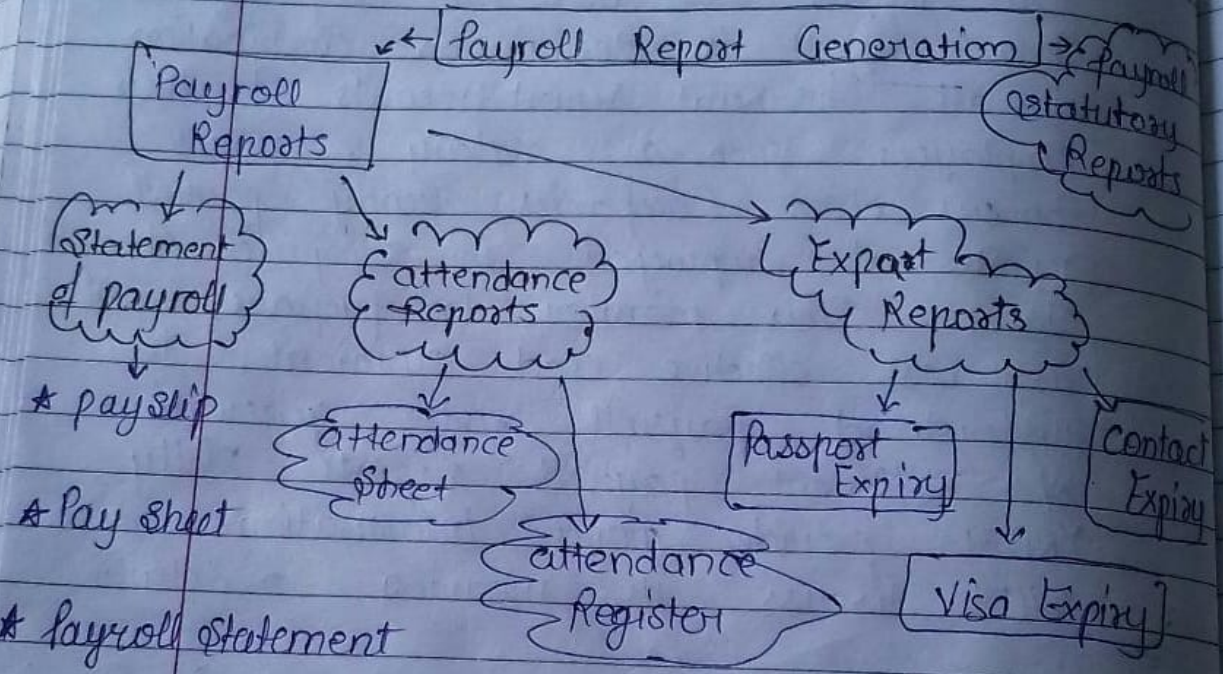 Payroll Report Generation
Payroll
Reports
Payroll
Statutory
Reports
Statement
of payroll
attendance
Reports
Expart
Reports
* pay slip
* Pay Sheet
* Payroll Statement
attendance
Sheet
attendance
Register
Passport
Expiry
Visa Expiry
Contact
Expiry